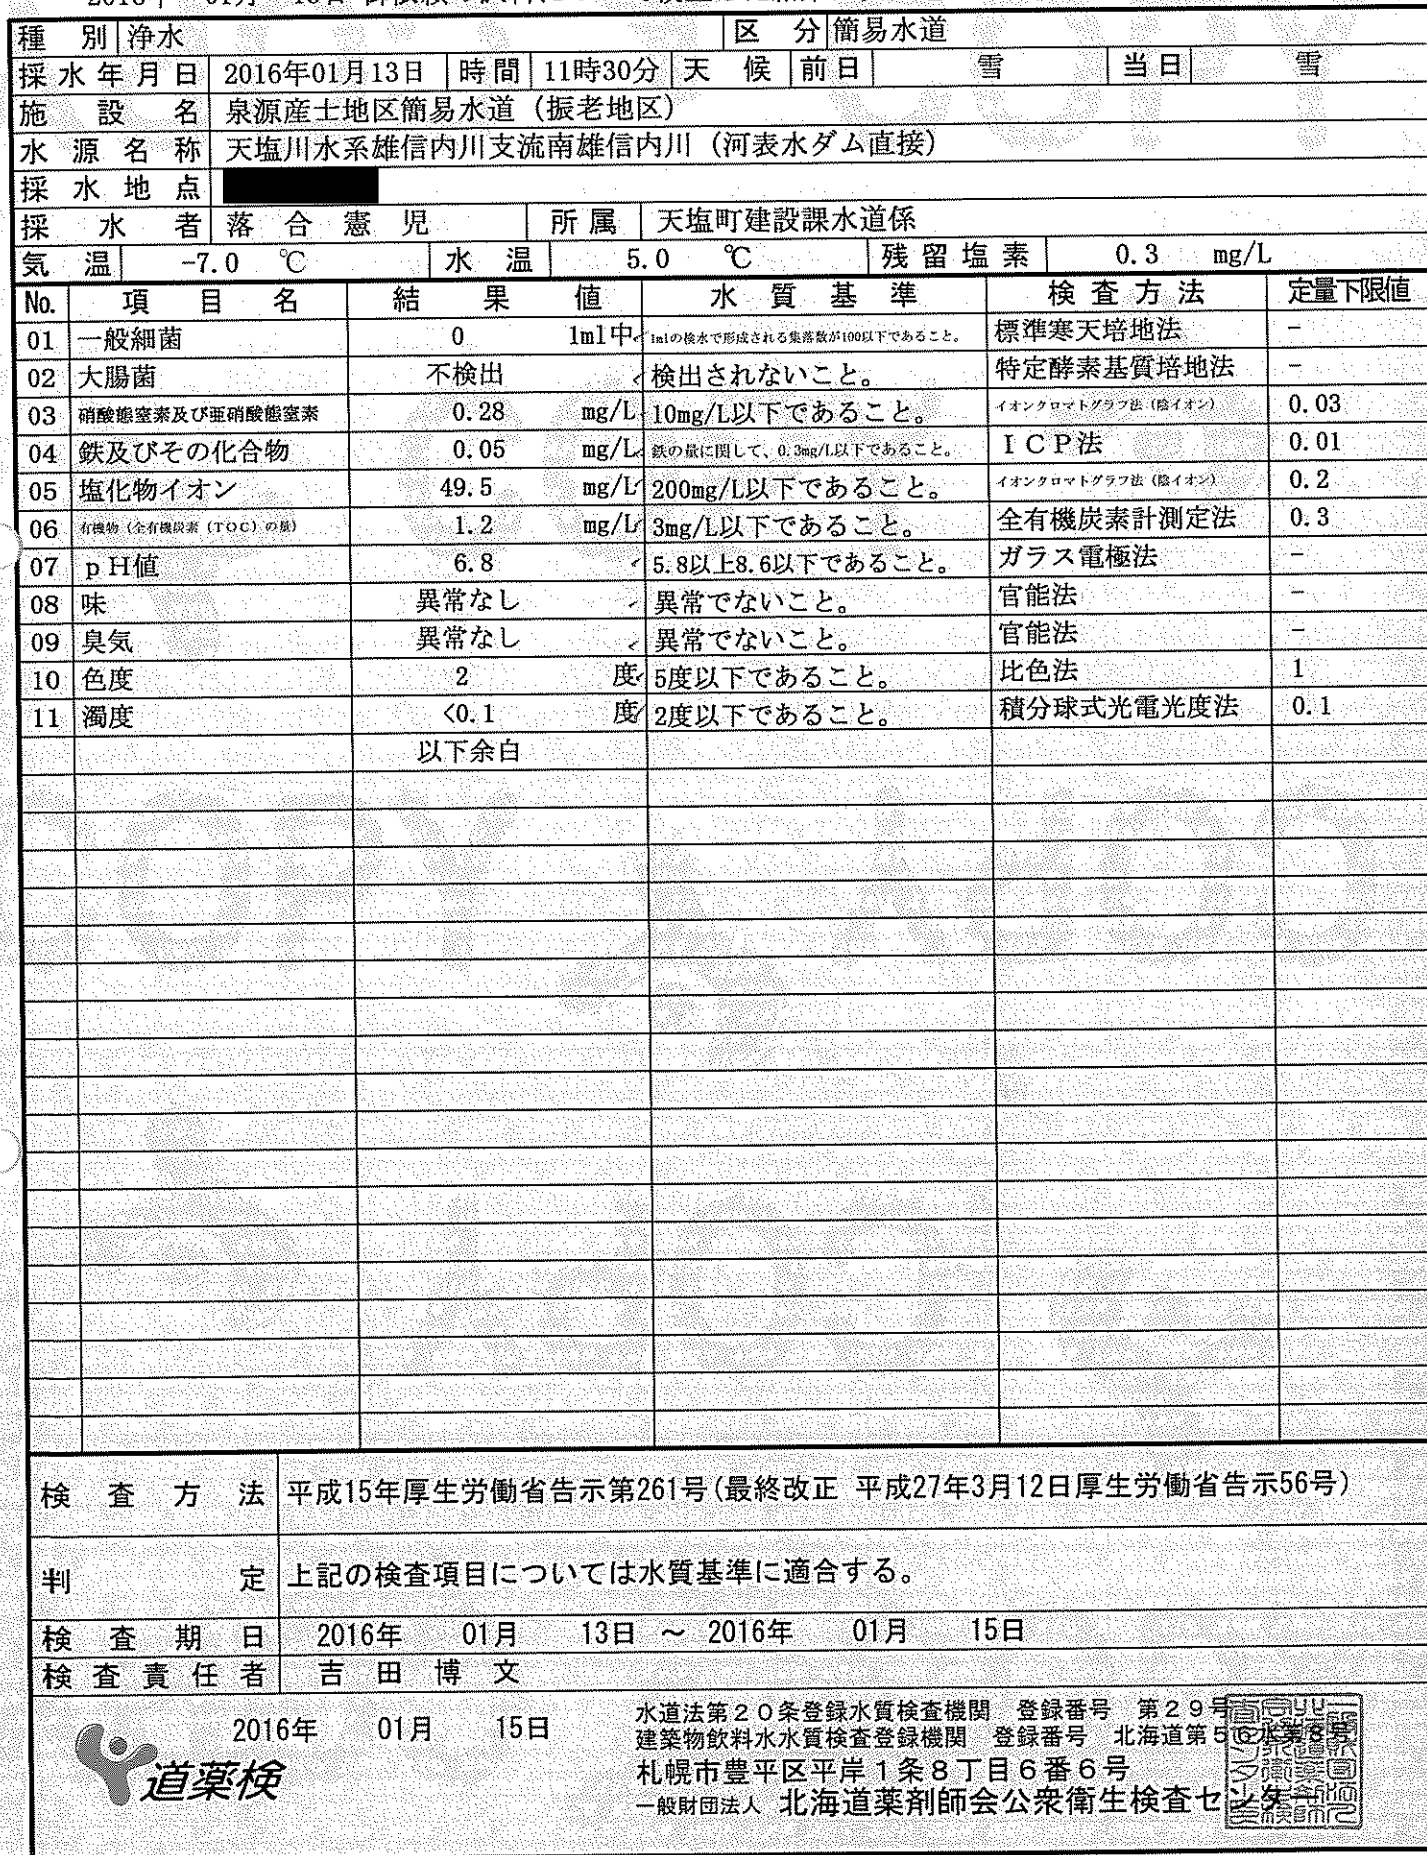 種別 浄水 区分 簡易水道
採水年月日 2016年01月13日 時間 11時30分 天候 前日 雪 当日 雪
施設名 泉源産士地区簡易水道（振老地区）
水源名称 天塩川水系雄信内川支流南雄信内川（河表水ダム直接）
採水地点
採水者 落合憲児 所属 天塩町建設課水道係
気温 -7.0 ℃ 水温 5.0 ℃ 残留塩素 0.3 mg/L
No. 項目名 結果値 水質基準 検査方法 定量下限値
01 一般細菌 0 1ml中 1mlの検水で形成される集落数が100以下であること。 標準寒天培地法 -
02 大腸菌 不検出 検出されないこと。 特定酵素基質培地法 -
03 硝酸態窒素及び亜硝酸態窒素 0.28 mg/L 10mg/L以下であること。 イオンクロマトグラフ法（陰イオン） 0.03
04 鉄及びその化合物 0.05 mg/L 鉄の量に関して、0.3mg/L以下であること。 ＩＣＰ法 0.01
05 塩化物イオン 49.5 mg/L 200mg/L以下であること。 イオンクロマトグラフ法（陰イオン） 0.2
06 有機物（全有機炭素（TOC）の量） 1.2 mg/L 3mg/L以下であること。 全有機炭素計測定法 0.3
07 ｐＨ値 6.8 5.8以上8.6以下であること。 ガラス電極法 -
08 味 異常なし 異常でないこと。 官能法 -
09 臭気 異常なし 異常でないこと。 官能法 -
10 色度 2 度 5度以下であること。 比色法 1
11 濁度 <0.1 度 2度以下であること。 積分球式光電光度法 0.1
以下余白
検査方法 平成15年厚生労働省告示第261号(最終改正 平成27年3月12日厚生労働省告示56号)
判定 上記の検査項目については水質基準に適合する。
検査期日 2016年 01月 13日 ～ 2016年 01月 15日
検査責任者 吉田博文
2016年 01月 15日
道薬検
水道法第２０条登録水質検査機関 登録番号 第２９号
建築物飲料水水質検査登録機関 登録番号 北海道第５６水第８号
札幌市豊平区平岸１条８丁目６番６号
一般財団法人 北海道薬剤師会公衆衛生検査センター